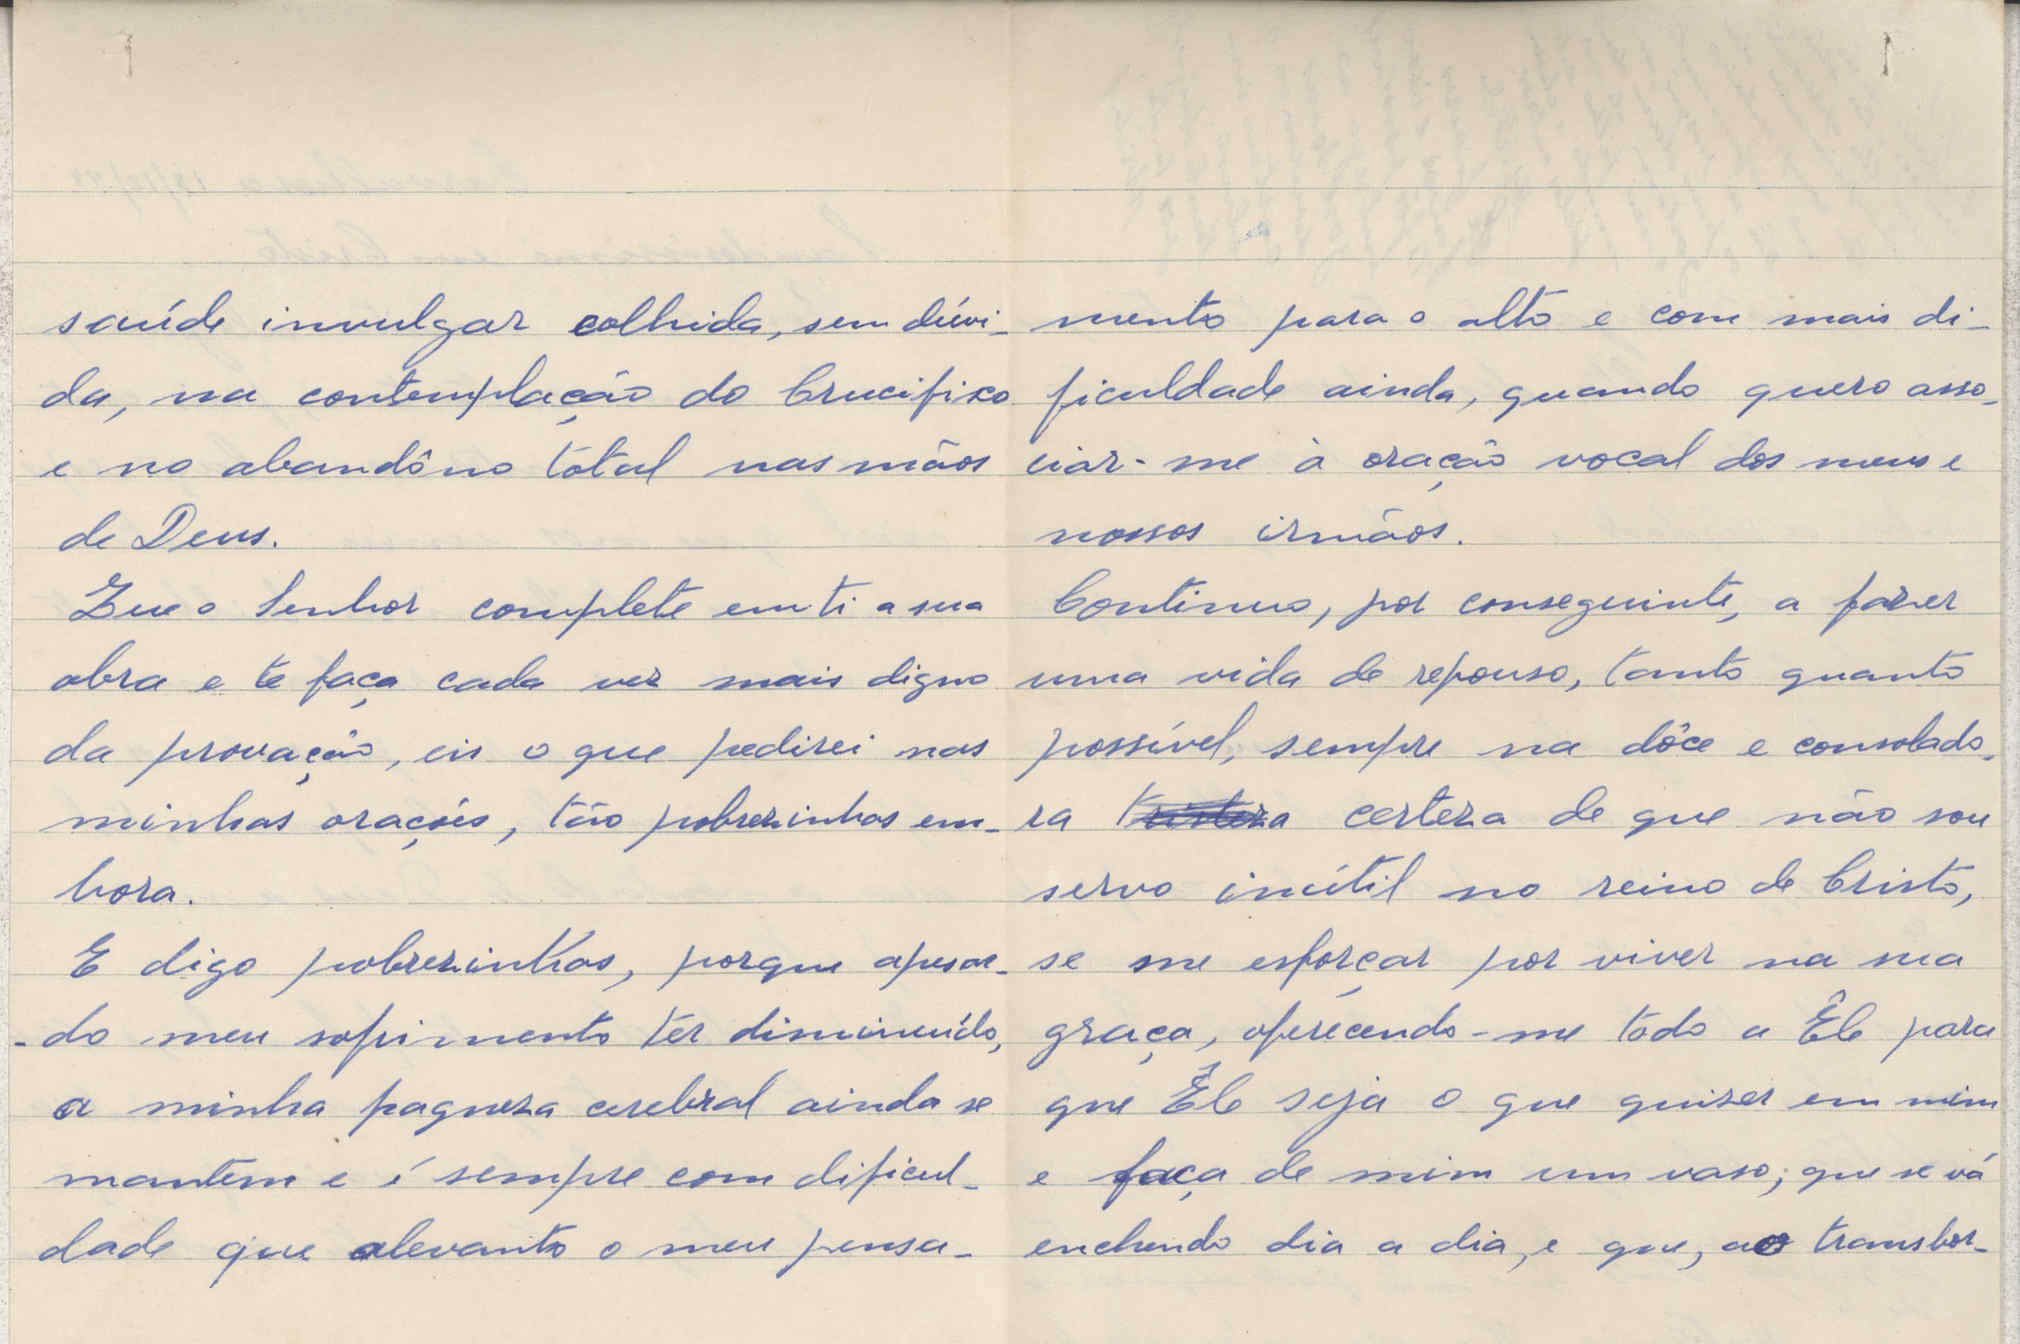 saúde invulgar colhida, sem dúvi-
da, na contemplação do Crucifixo
e no abandôno total nas mãos
de Deus.
Que o Senhor complete em ti a sua
obra e te faça cada vez mais digno
da provação, eis o que pedirei nas
minhas orações, tão pobrezinhas em-
bora.
E digo pobrezinhas, porque apesar-
-do meu sofrimento ter diminuído,
a minha fraqueza cerebral ainda se
mantem e é sempre com dificul-
dade que alevanto o meu pensa-
mento para o alto e com mais di-
ficuldade ainda, quando quero asso-
ciar-me à oração vocal dos meus e
nossos irmãos.
Continuo, por conseguinte, a fazer
uma vida de repouso, tanto quanto
possível, sempre na dôce e consolado-
ra tristeza certeza de que não sou
servo inútil no reino de Cristo,
se me esforçar por viver na sua
graça, oferecendo-me todo a Êle para
que Êle seja o que quizer em mim
e faça de mim um vaso; que se vá
enchendo dia a dia, e que, ao transbor-